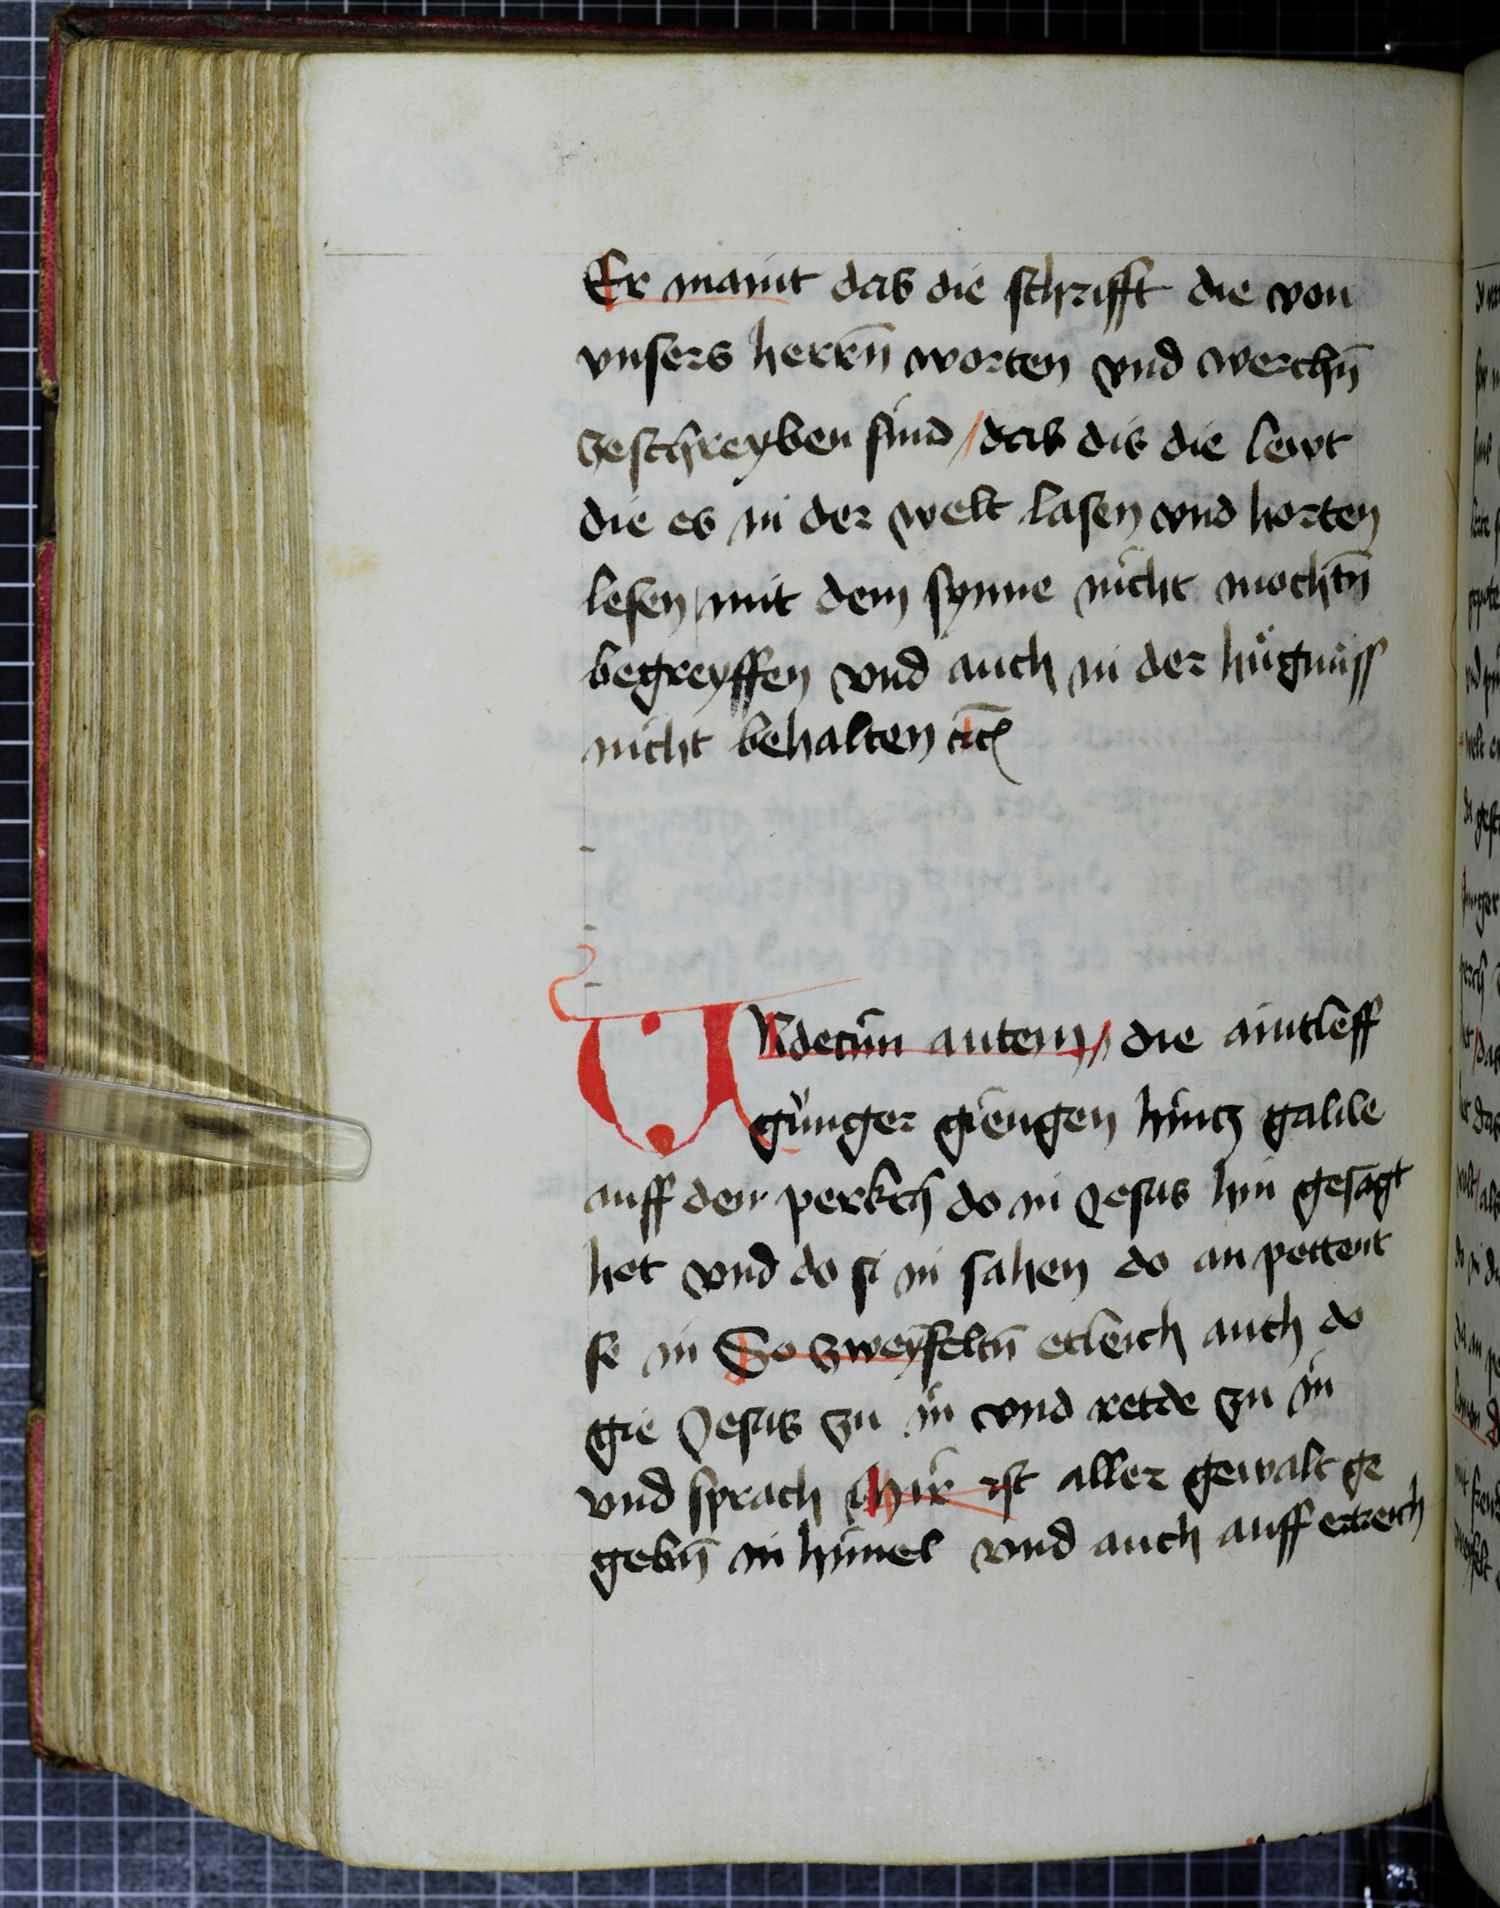 Er maint das die schrifft die von
vnsers herrn̄ worten vnd werchn̄
geschreyben sind / das dis die lewt
die es in der welt lasen vnd horten
lesen / mit dem synne nicht mochtn̄
begreyffen vnd auch in der hügnüss
nicht behalten etc̄
VNdecim autem // die aintleff
günger giengen hincz galile
auff den perkch do in Jesus hin gesagt
het vnd do si in sahen do an pettent
se in So zweyfeltn̄ etleich auch do
gie Jesus zu in vnd retde zu in
vnd sprach Mir ist aller gewalt ge
gebn̄ in himel vnd auch auff ertreich